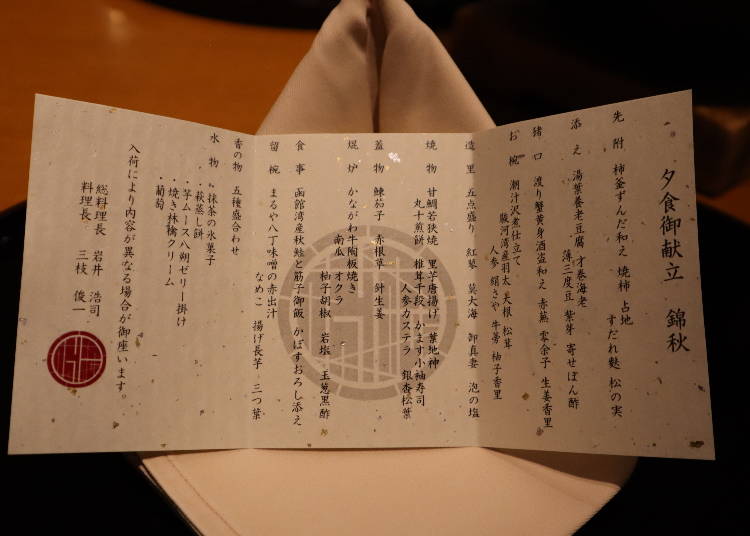 夕食御献立 錦秋
先附 柿釜ずんだ和え 焼柿 占地
すだれ麩 松の実
添え 湯葉養老豆腐 才巻海老
薄三度豆 紫芽 寄せぽん酢
猪口 渡り蟹黄身酒盗和え 赤蕪 零余子 生姜香里
お椀 潮汁沢煮仕立て
駿河湾産羽太 大根 松茸
人参 絹さや 牛蒡 柚子香里
造里 五点盛り 紅蓼 莫大海 御真妻 泡の塩
焼物 甘鯛若狭焼 里芋唐揚げ 葉地神
丸十煎餅 椎茸千段 かます小袖寿司
人参カステラ 銀杏松葉
蓋物 鰊茄子 赤根草 針生姜
焜炉 かながわ牛陶板焼き
南瓜 オクラ
柚子胡椒 岩塩 玉葱黒酢
食事 函館湾産秋鮭と筋子御飯 かぼすおろし添え
留椀 まるや八丁味噌の赤出汁
なめこ 揚げ長芋 三つ葉
香の物 五種盛合わせ
水物 ・抹茶の氷菓子
・萩蒸し餅
・芋ムース八朔ゼリー掛け
・焼き林檎クリーム
・葡萄
入荷により内容が異なる場合が御座います。
総料理長 岩井 浩司
料理長 三枝 俊一